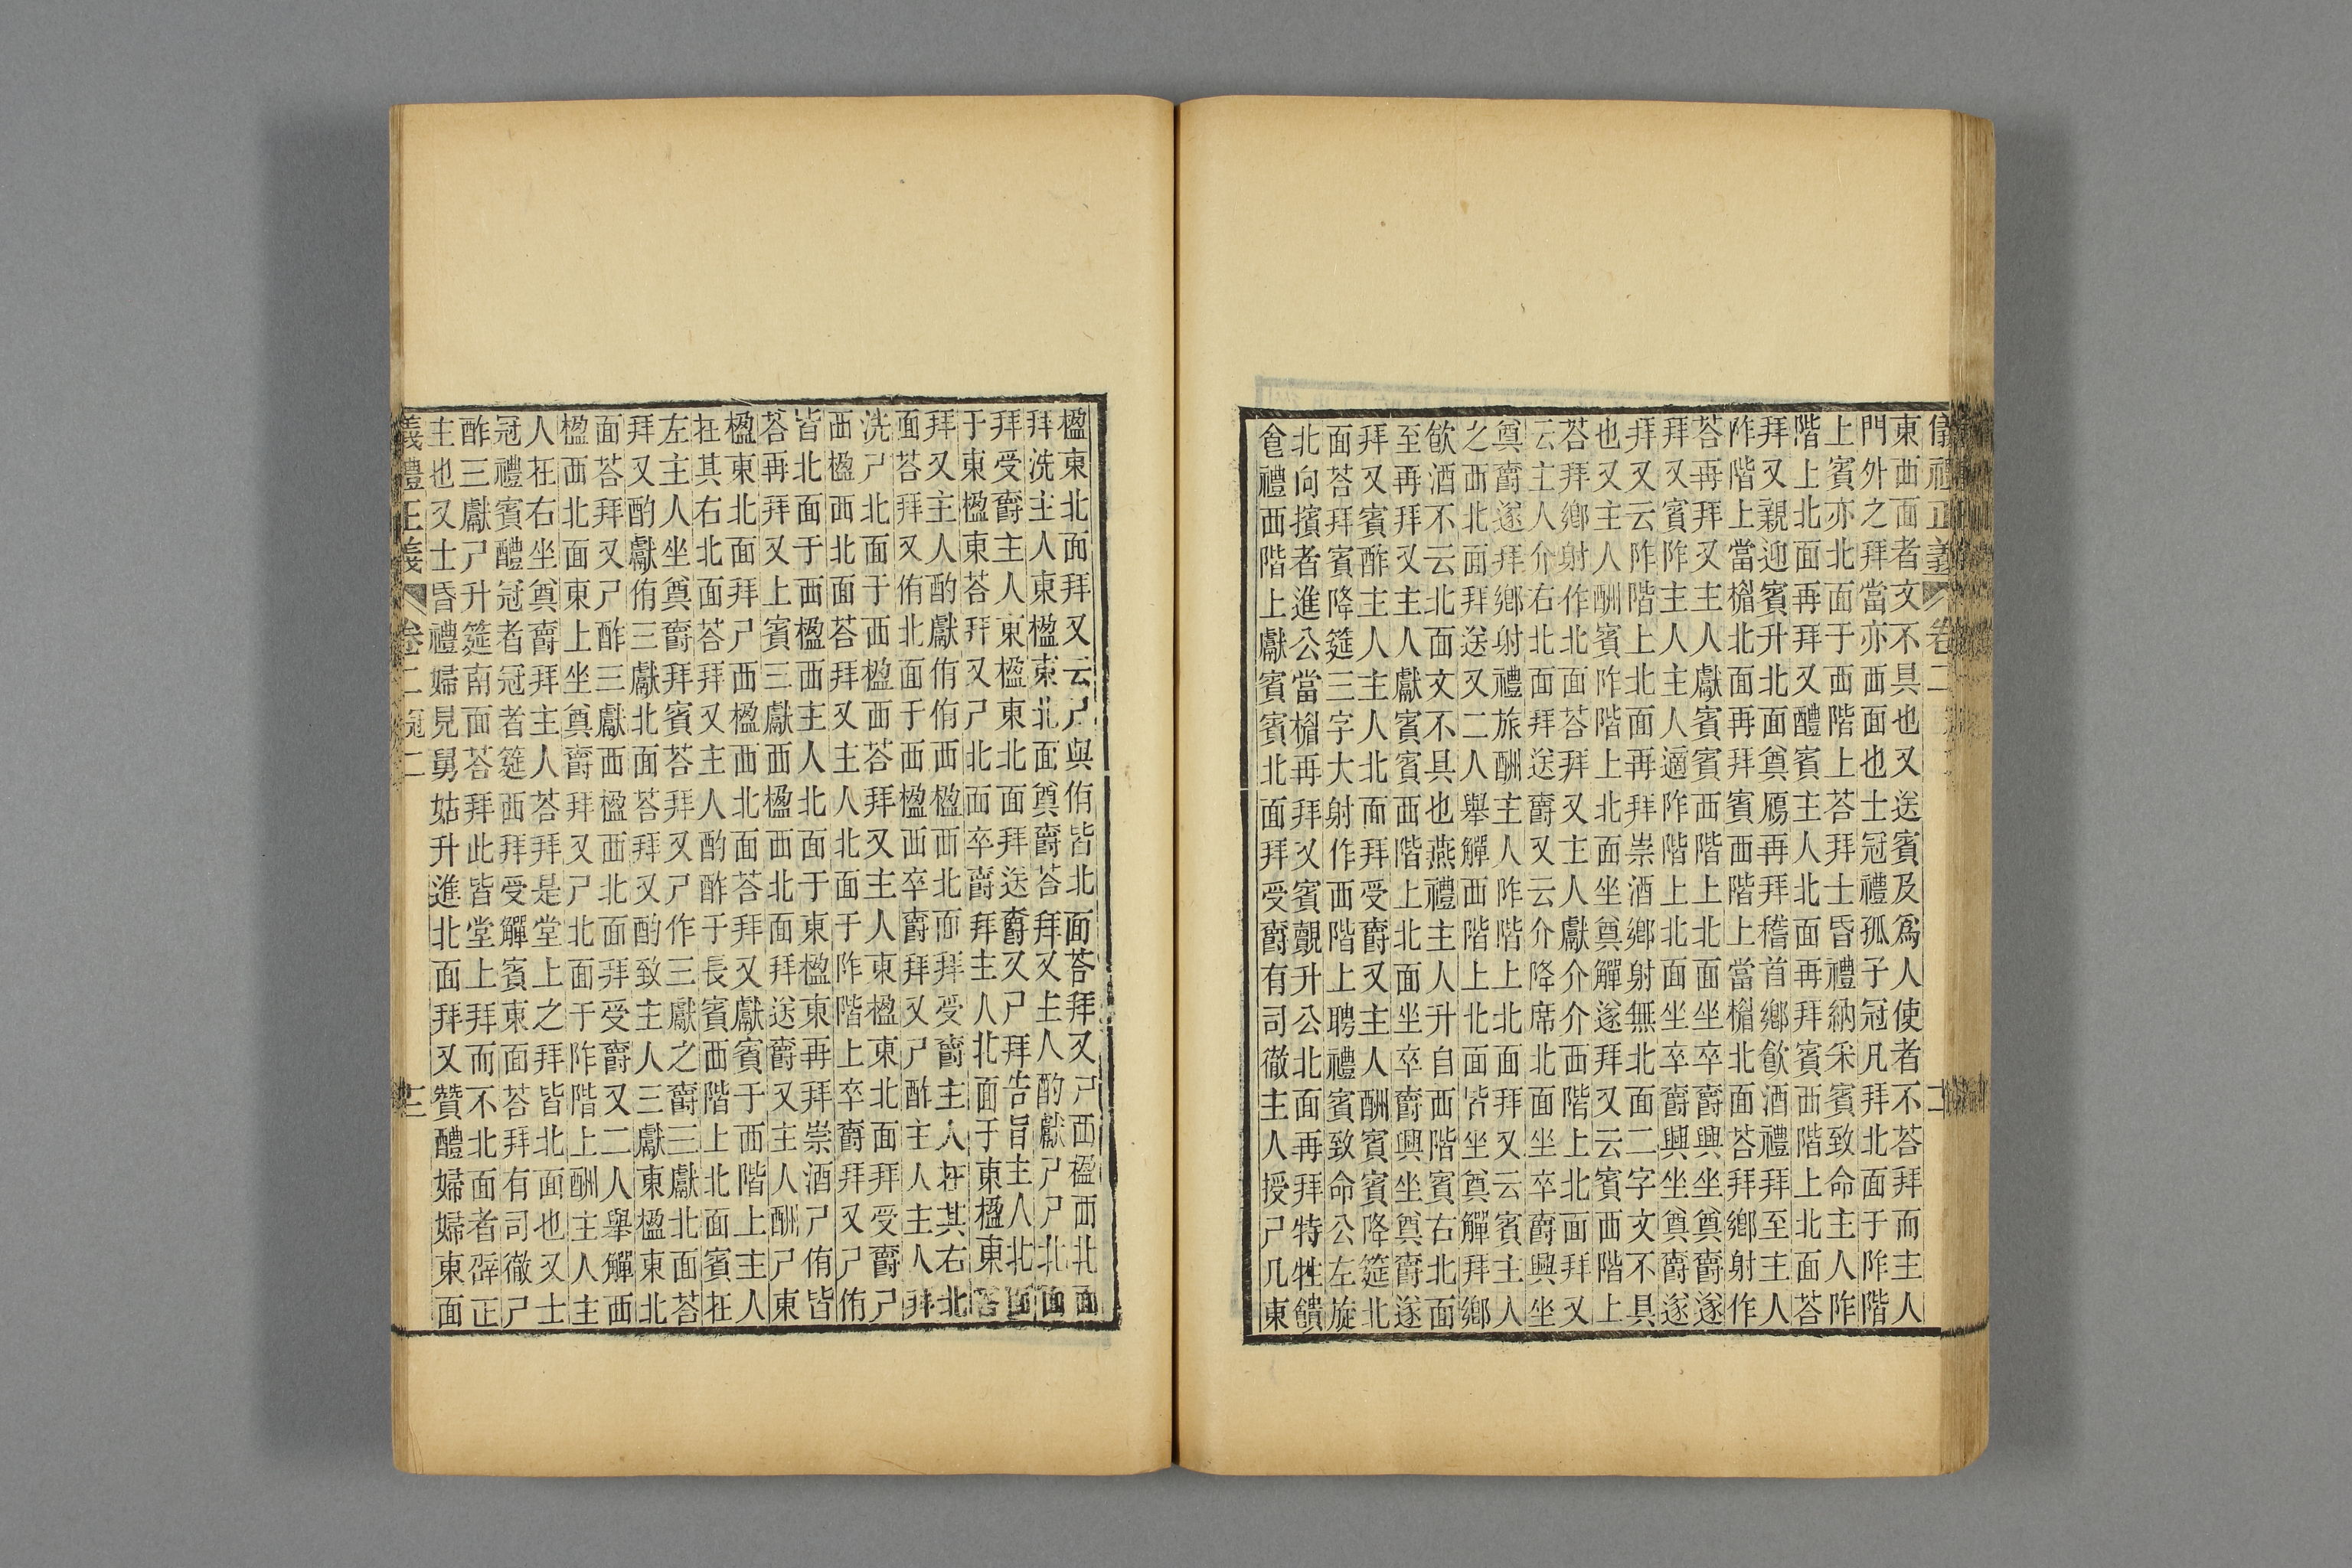 儀禮正義 卷二 二
東西面者文不具也又送賓及爲人使者不荅拜而主人
門外之拜當亦西面也士冠禮孤子冠凡拜北面于阼階
上賓亦北面于西階上荅拜士昏禮納采賓致命主人阼
階上北面再拜又醴賓主人北面再拜賓西階上北面荅
拜又親迎賓升北面奠鴈再拜稽首鄉飮酒禮拜至主人
阼階上當楣北面再拜賓西階上當楣北面荅拜鄉射作
荅再拜又主人獻賓賓西階上北面坐卒爵興坐奠爵遂
拜又賓阼主人主人適阼階上北面坐卒爵興坐奠爵遂
拜又云阼階上北面再拜崇酒鄉射無北面二字文不具
也又主人酬賓阼階上北面坐奠觶遂拜又云賓西階上
荅拜鄉射作北面荅拜又主人獻介介西階上北面拜又
云主人介右北面拜送爵又云介降席北面坐卒爵興坐
奠爵遂拜鄉射禮旅酬主人阼階上北面拜又云賓主人
之西北面拜送又二人舉觶西階上北面皆坐奠觶拜鄉
飮酒不云北面文不具也燕禮主人升自西階賓右北面
至再拜又主人獻賓賓西階上北面坐卒爵興坐奠爵遂
拜又賓酢主人主人北面拜受爵又主人酬賓賓降筵北
面荅拜賓降筵三字大射作西階上聘禮賓致命公左旋
北向擯者進公當楣再拜又賓覿升公北面再拜特牲饋
食禮西階上獻賓賓北面拜受爵有司徹主人授尸几東
楹東北面拜又云尸與侑皆北面荅拜又尸西楹西北面
拜洗主人東楹東北面奠爵荅拜又主人酌獻尸尸北面
拜受爵主人東楹東北面拜送爵又尸拜告旨主人北面
于東楹東荅拜又尸北面卒爵拜主人北面于東楹東荅
拜又主人酌獻侑侑西楹西北面拜受爵主人在其右北
面荅拜又侑北面于西楹西卒爵拜又尸酢主人主人拜
洗尸北面于西楹西荅拜又主人東楹東北面拜受爵尸
西楹西北面荅拜又主人北面于阼階上卒爵拜又尸侑
皆北面于西楹西主人北面于東楹東再拜崇酒尸侑皆
荅再拜又上賓三獻西楹西北面拜送爵又主人酬尸東
楹東北面拜尸西楹西北面荅拜又獻賓于西階上主人
在其右北面荅拜又主人酌酢于長賓西階上北面賓在
左主人坐奠爵拜賓荅拜又尸作三獻之爵三獻北面荅
拜又酌獻侑三獻北面荅拜又酌致主人三獻東楹東北
面荅拜又尸酢三獻西楹西北面拜受爵又二人舉觶西
楹西北面東上坐奠爵拜又尸北面于阼階上酬主人主
人在右坐奠爵拜主人荅拜是堂上之拜皆北面也又士
冠禮賓醴冠者冠者筵西拜受觶賓東面荅拜有司徹尸
酢三獻尸升筵南面荅拜此皆堂上拜而不北面者辟正
主也又士昏禮婦見舅姑升進北面拜又贊醴婦婦東面
禮正義 卷二 冠二 三